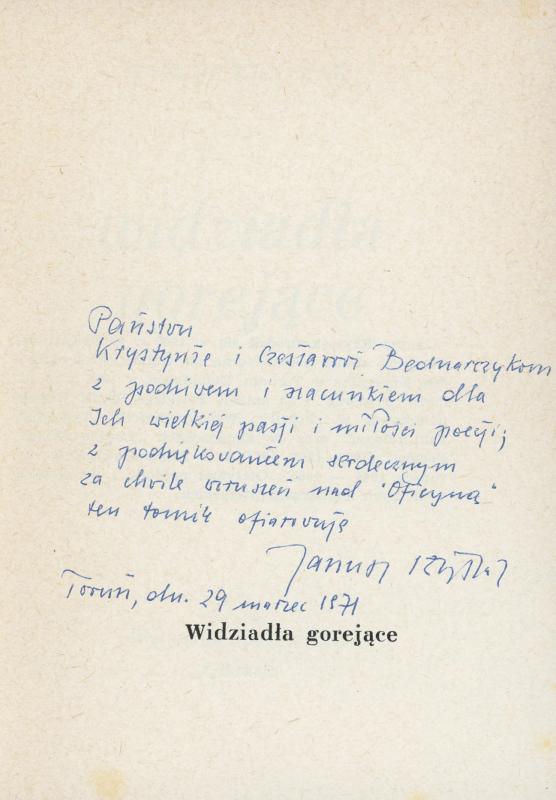 Państwu
Krystynie i Czesławowi Bednarczykom
z podziwem i szacunkiem dla
Ich wielkiej pasji i miłości poezji;
z podziękowaniem serdecznym
za chwile wzruszeń nad "Oficyną"
ten tomik ofiarowuję
Janusz
Toruń, dn. 29 marzec 1971
Widziadła gorejące